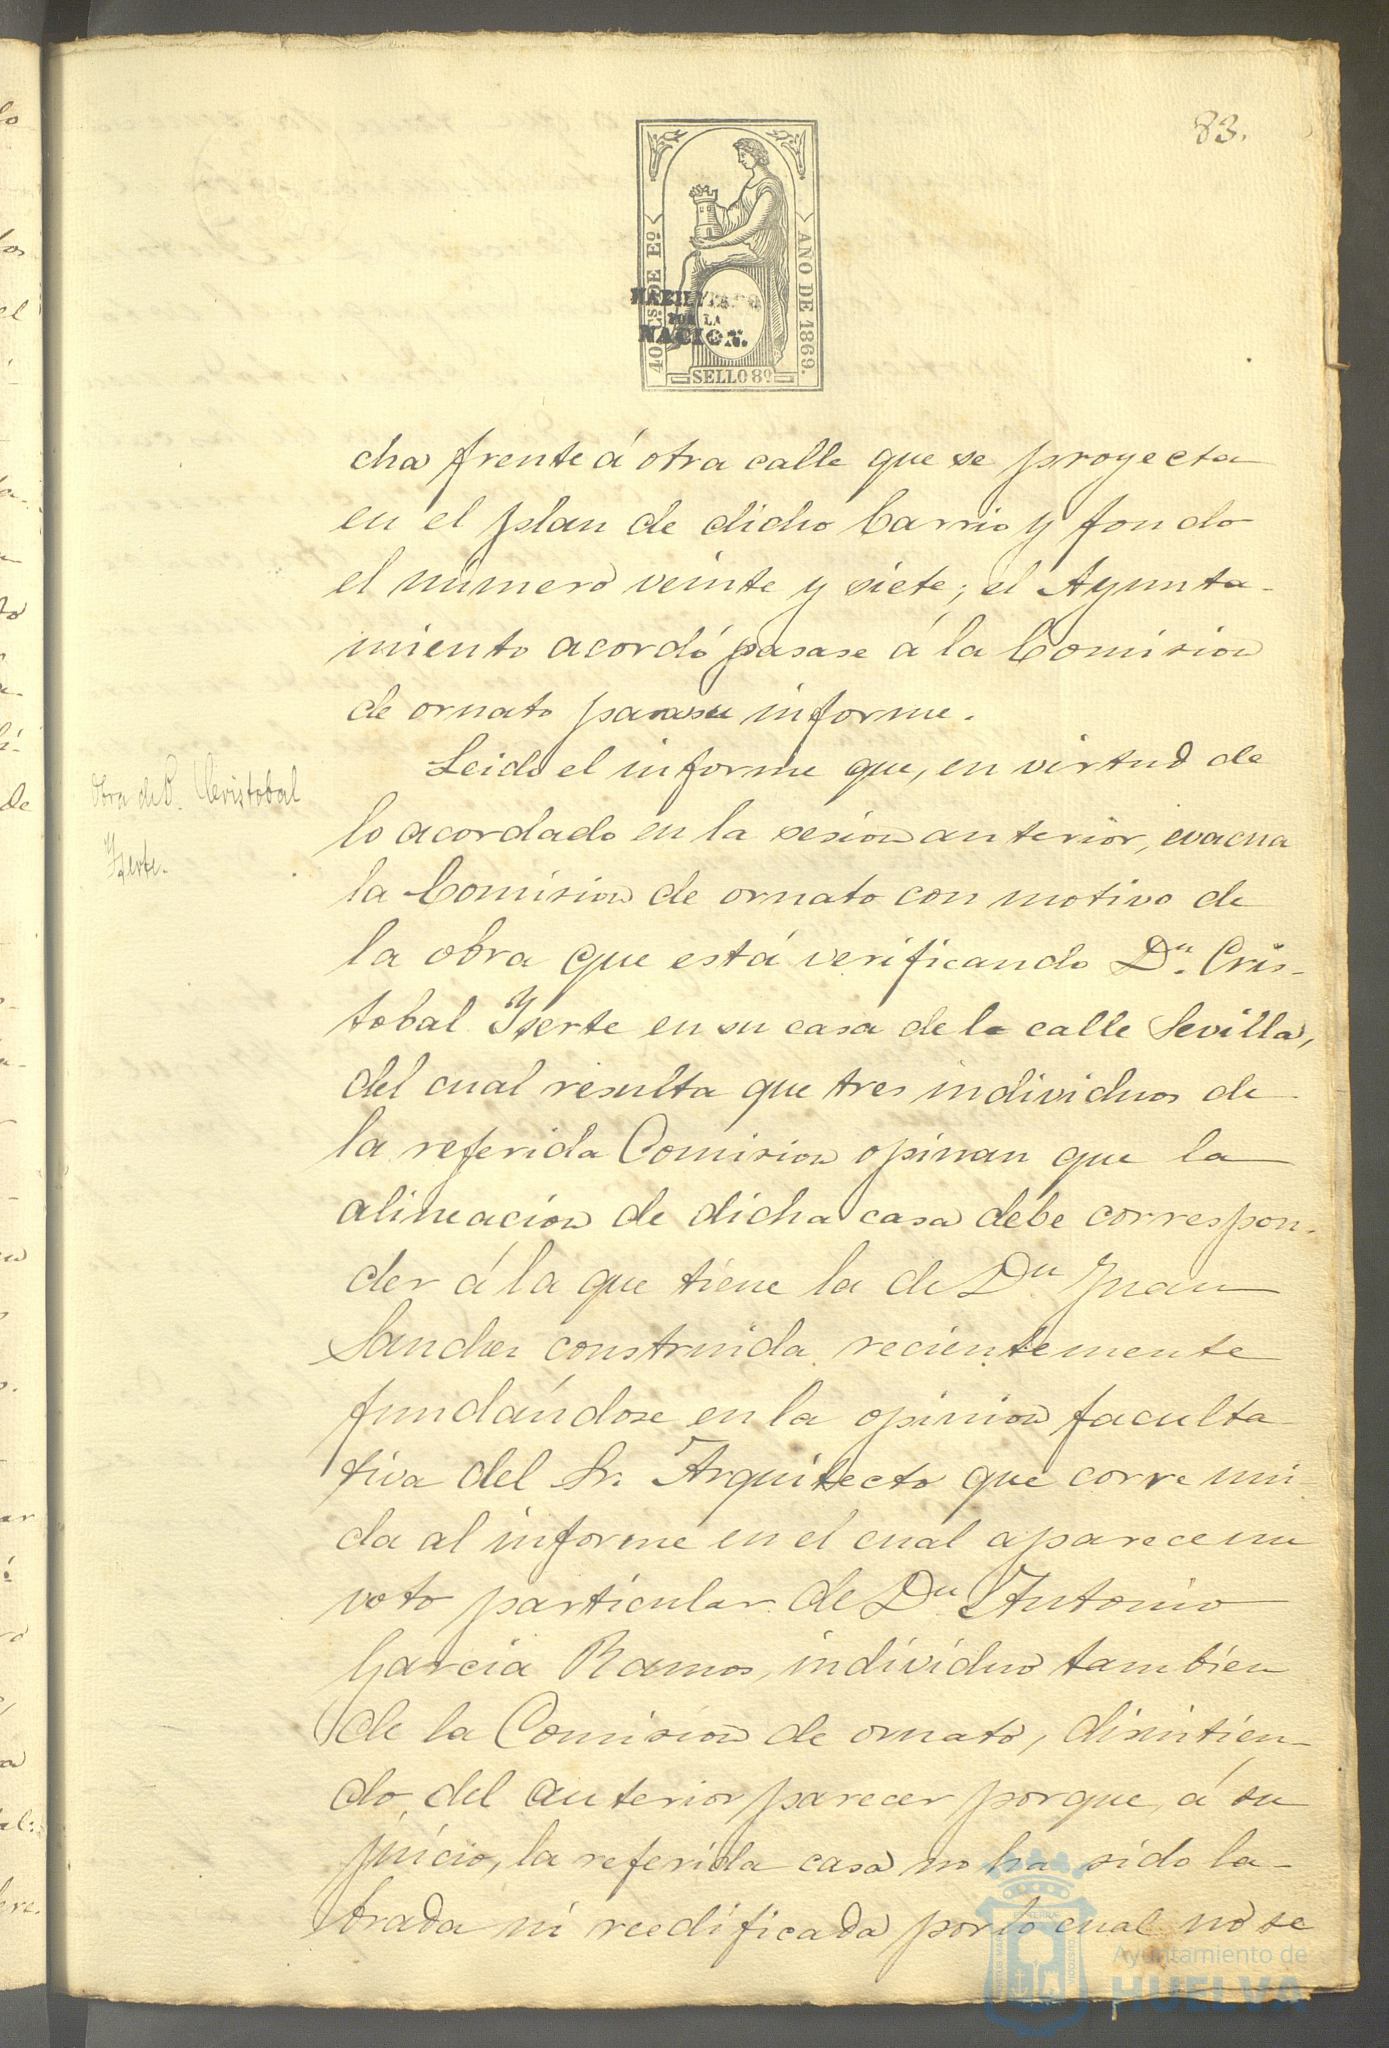 83.
40 Cs. DE Eº.
AÑO DE 1869.
HABILITADO
POR LA
NACION.
SELLO 8º
cha frente á otra calle que se proyecta
en el plan de dicho barrio y fondo
el número veinte y siete; el Ayunta-
miento acordó pasase á la Comision
de ornato para su informe.
Obra de D. Cristobal
Yserte.
Leido el informe que, en virtud de
lo acordado en la sesion anterior, evacua
la Comision de ornato con motivo de
la obra que está verificando Dn. Cris-
tobal Yserte en su casa de la calle Sevilla,
del cual resulta que tres individuos de
la referida Comision opinan que la
alineacion de dicha casa debe correspon-
der á la que tiene la de Dn. Juan
Sanchez construida recientemente
fundándose en la opinion faculta
tiva del Sr. Arquitecto que corre uni
da al informe en el cual aparece un
voto particular de Dn. Antonio
Garcia Ramos, individuo tambien
de la Comision de ornato, disintien-
do del anterior parecer porque, á su
juicio, la referida casa no ha sido la-
brada ni reedificada por lo cual no se
Ayuntamiento de
HUELVA